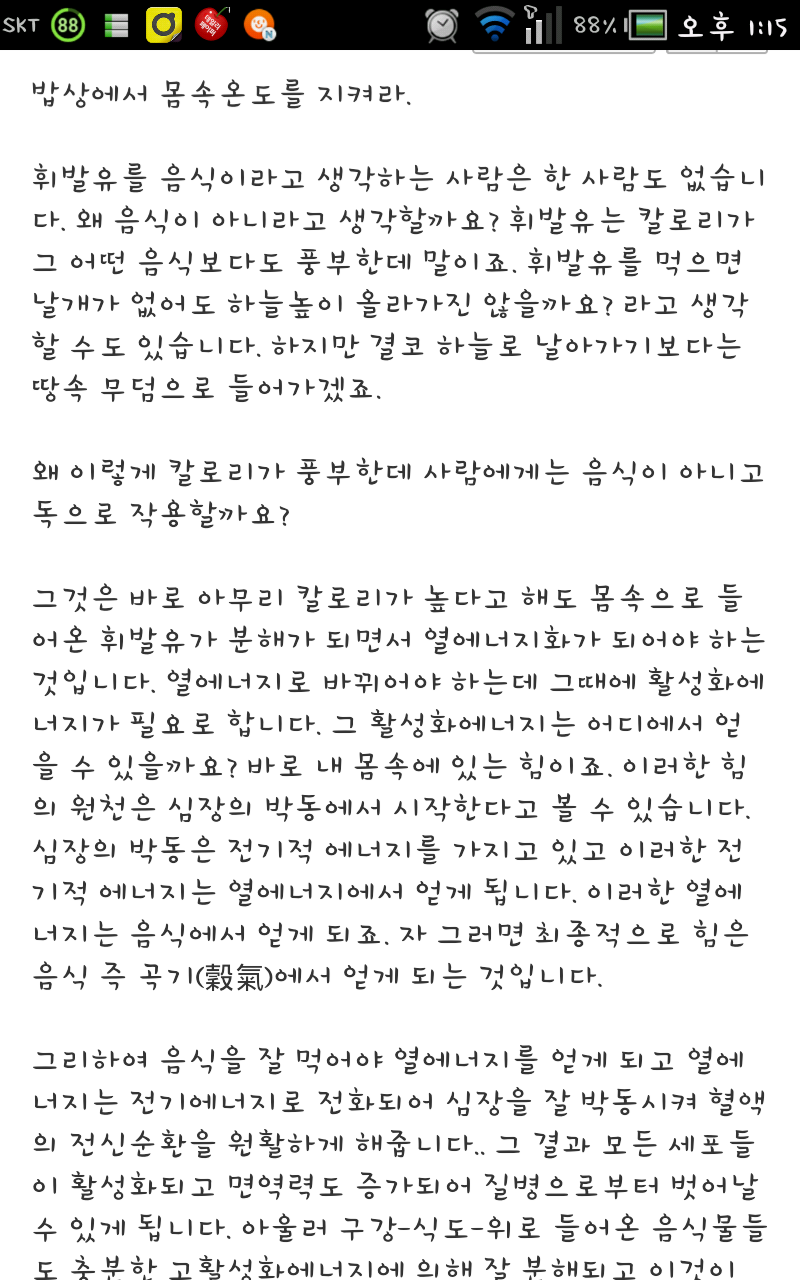 SKT 88 88% 오후 1:15
밥상에서 몸속온도를 지켜라.
휘발유를 음식이라고 생각하는 사람은 한 사람도 없습니
다. 왜 음식이 아니라고 생각할까요? 휘발유는 칼로리가
그 어떤 음식보다도 풍부한데 말이죠. 휘발유를 먹으면
날개가 없어도 하늘높이 올라가진 않을까요? 라고 생각
할 수도 있습니다. 하지만 결코 하늘로 날아가기보다는
땅속 무덤으로 들어가겠죠.
왜 이렇게 칼로리가 풍부한데 사람에게는 음식이 아니고
독으로 작용할까요?
그것은 바로 아무리 칼로리가 높다고 해도 몸속으로 들
어온 휘발유가 분해가 되면서 열에너지화가 되어야 하는
것입니다. 열에너지로 바뀌어야 하는데 그때에 활성화에
너지가 필요로 합니다. 그 활성화에너지는 어디에서 얻
을 수 있을까요? 바로 내 몸속에 있는 힘이죠. 이러한 힘
의 원천은 심장의 박동에서 시작한다고 볼 수 있습니다.
심장의 박동은 전기적 에너지를 가지고 있고 이러한 전
기적 에너지는 열에너지에서 얻게 됩니다. 이러한 열에
너지는 음식에서 얻게 되죠. 자 그러면 최종적으로 힘은
음식 즉 곡기(穀氣)에서 얻게 되는 것입니다.
그리하여 음식을 잘 먹어야 열에너지를 얻게 되고 열에
너지는 전기에너지로 전화되어 심장을 잘 박동시켜 혈액
의 전신순환을 원활하게 해줍니다.. 그 결과 모든 세포들
이 활성화되고 면역력도 증가되어 질병으로부터 벗어날
수 있게 됩니다. 아울러 구강-식도-위로 들어온 음식물들
도 충분한 고활성화에너지에 의해 잘 분해되고 이것이